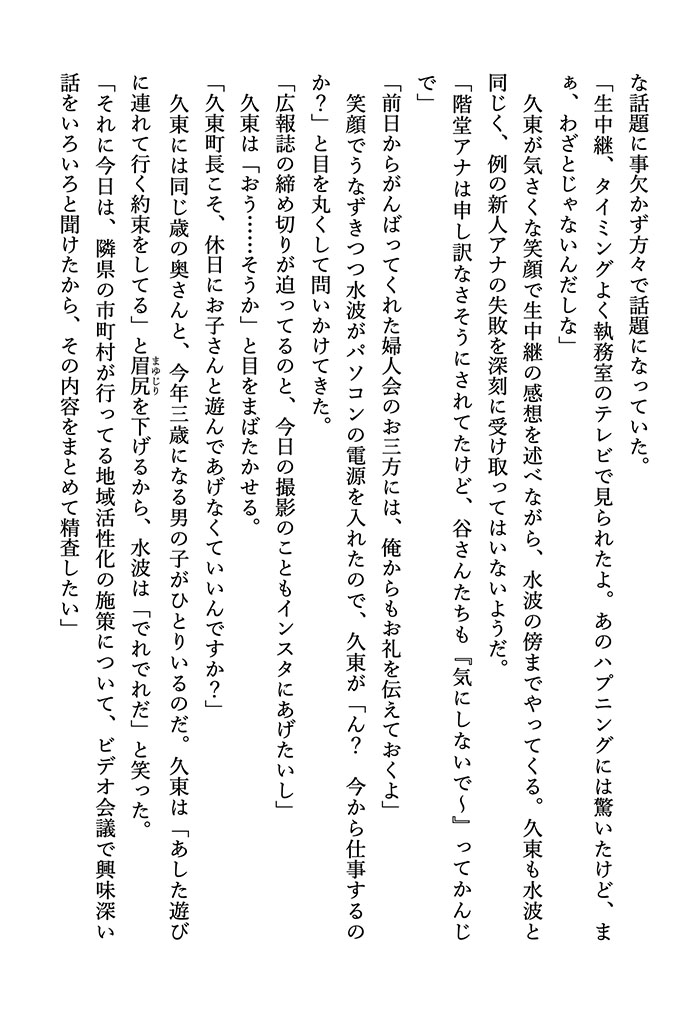 な話題に事欠かず方々で話題になっていた。
「生中継、タイミングよく執務室のテレビで見られたよ。あのハプニングには驚いたけど、ま
ぁ、わざとじゃないんだしな」
　久東が気さくな笑顔で生中継の感想を述べながら、水波の傍までやってくる。久東も水波と
同じく、例の新人アナの失敗を深刻に受け取ってはいないようだ。
「階堂アナは申し訳なさそうにされてたけど、谷さんたちも『気にしないで〜』ってかんじ
で」
「前日からがんばってくれた婦人会のお三方には、俺からもお礼を伝えておくよ」
　笑顔でうなずきつつ水波がパソコンの電源を入れたので、久東が「ん？　今から仕事するの
か？」と目を丸くして問いかけてきた。
「広報誌の締め切りが迫ってるのと、今日の撮影のこともインスタにあげたいし」
　久東は「おう……そうか」と目をまばたかせる。
「久東町長こそ、休日にお子さんと遊んであげなくていいんですか？」
　久東には同じ歳の奥さんと、今年三歳になる男の子がひとりいるのだ。久東は「あした遊び
に連れて行く約束をしてる」と眉尻を下げるから、水波は「でれでれだ」と笑った。
まゆじり
「それに今日は、隣県の市町村が行ってる地域活性化の施策について、ビデオ会議で興味深い
話をいろいろと聞けたから、その内容をまとめて精査したい」